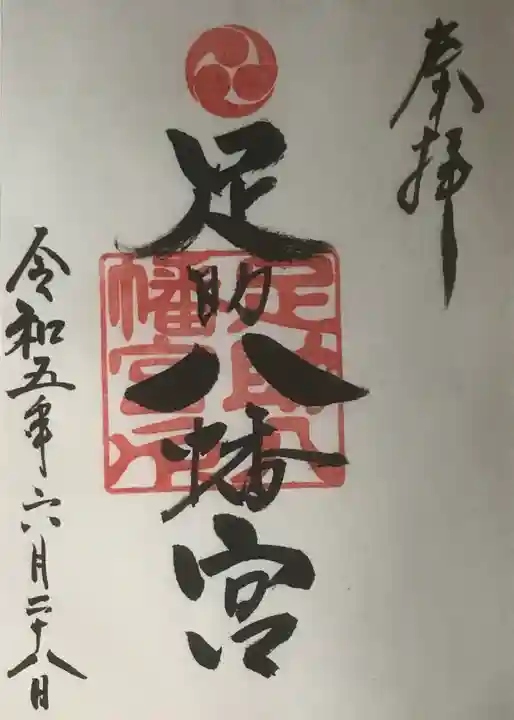 奉拝
足助八幡宮
足助八幡宮印
令和五年六月二十八日